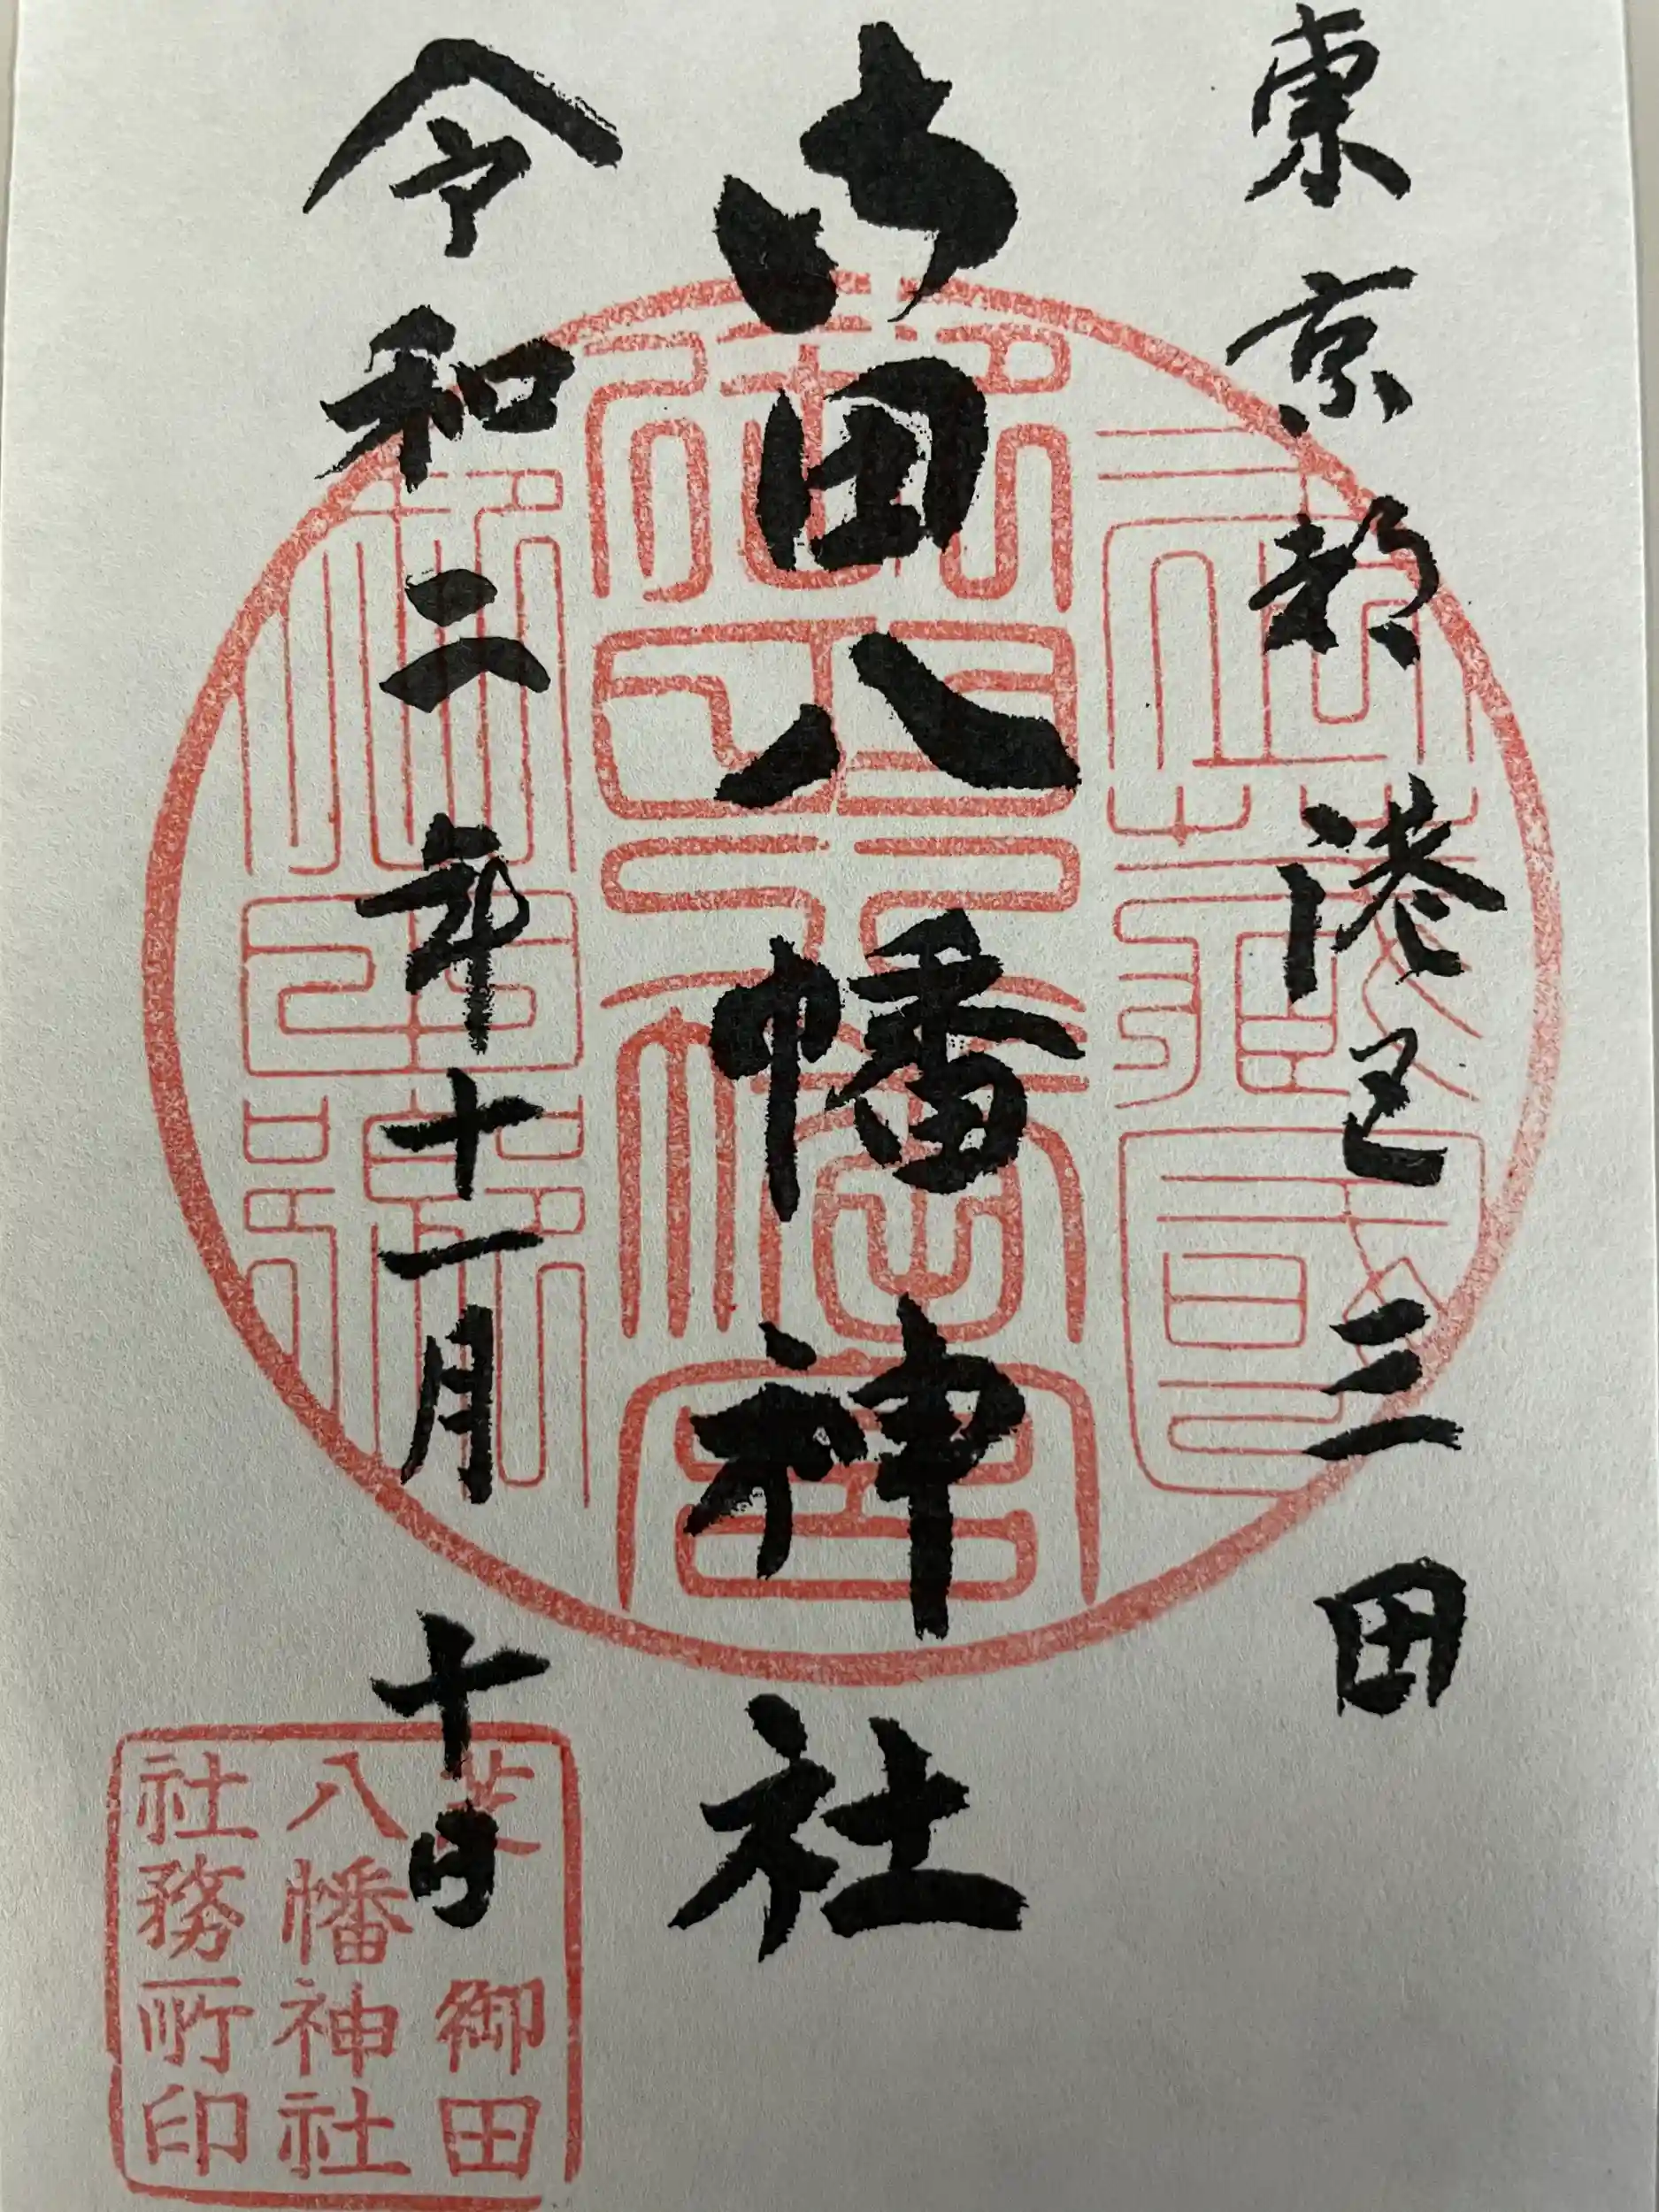 東京都港区三田
御田八幡神社
令和二年十一月十日
芝御田
八幡神社
社務所印